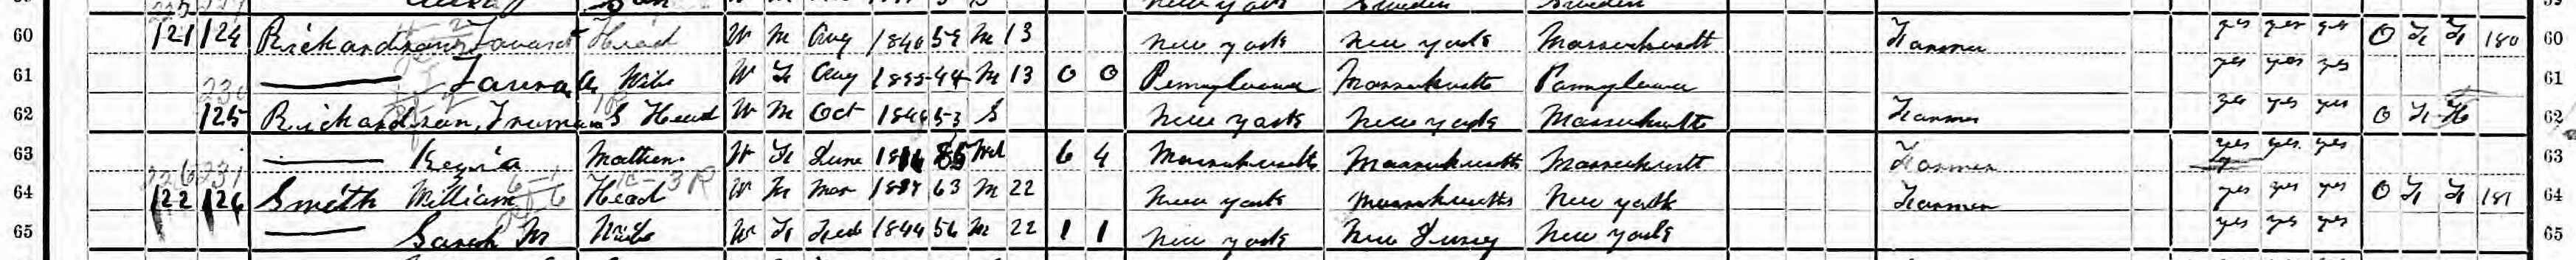 New York Sweden Sweden
60 121 124 Richardson, Head W M Aug 1840 59 M 13 New York New York Massachusetts Farmer yes yes yes O F F 180 60
61 —— Laura A Wife W F Aug 1855 44 M 13 0 0 Pennsylvania Massachusetts Pennsylvania yes yes yes 61
62 125 Richardson, Truman S Head W M Oct 1846 53 S New York New York Massachusetts Farmer yes yes yes O F H 62
63 —— Mother W F June 85 Wd 6 4 Massachusetts Massachusetts Massachusetts Farmer yes yes yes 63
64 122 126 Smith William Head W M Mar 63 M 22 New York Massachusetts New York Farmer yes yes yes O F F 181 64
65 —— Sarah M Wife W F Feb 1844 56 M 22 1 1 New York New Jersey New York yes yes yes 65